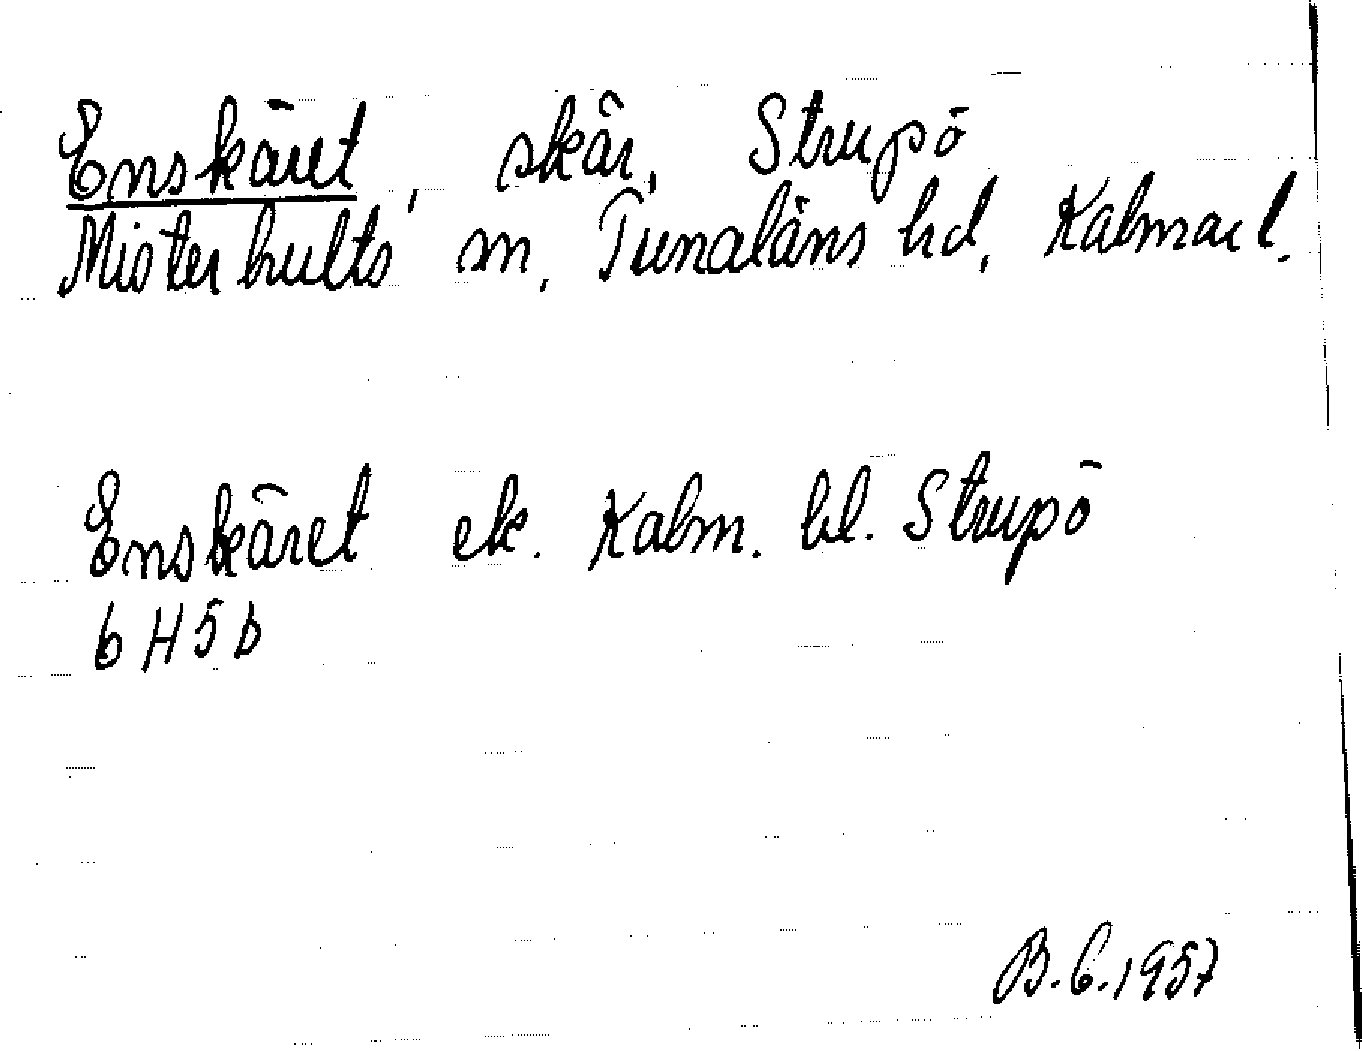 Enskäret, skär, Strupö
Misterhults sn, Tunaläns hd, Kalmar l.
Enskäret ek. Kalm. bl. Strupö
6H5b
B.G.1957